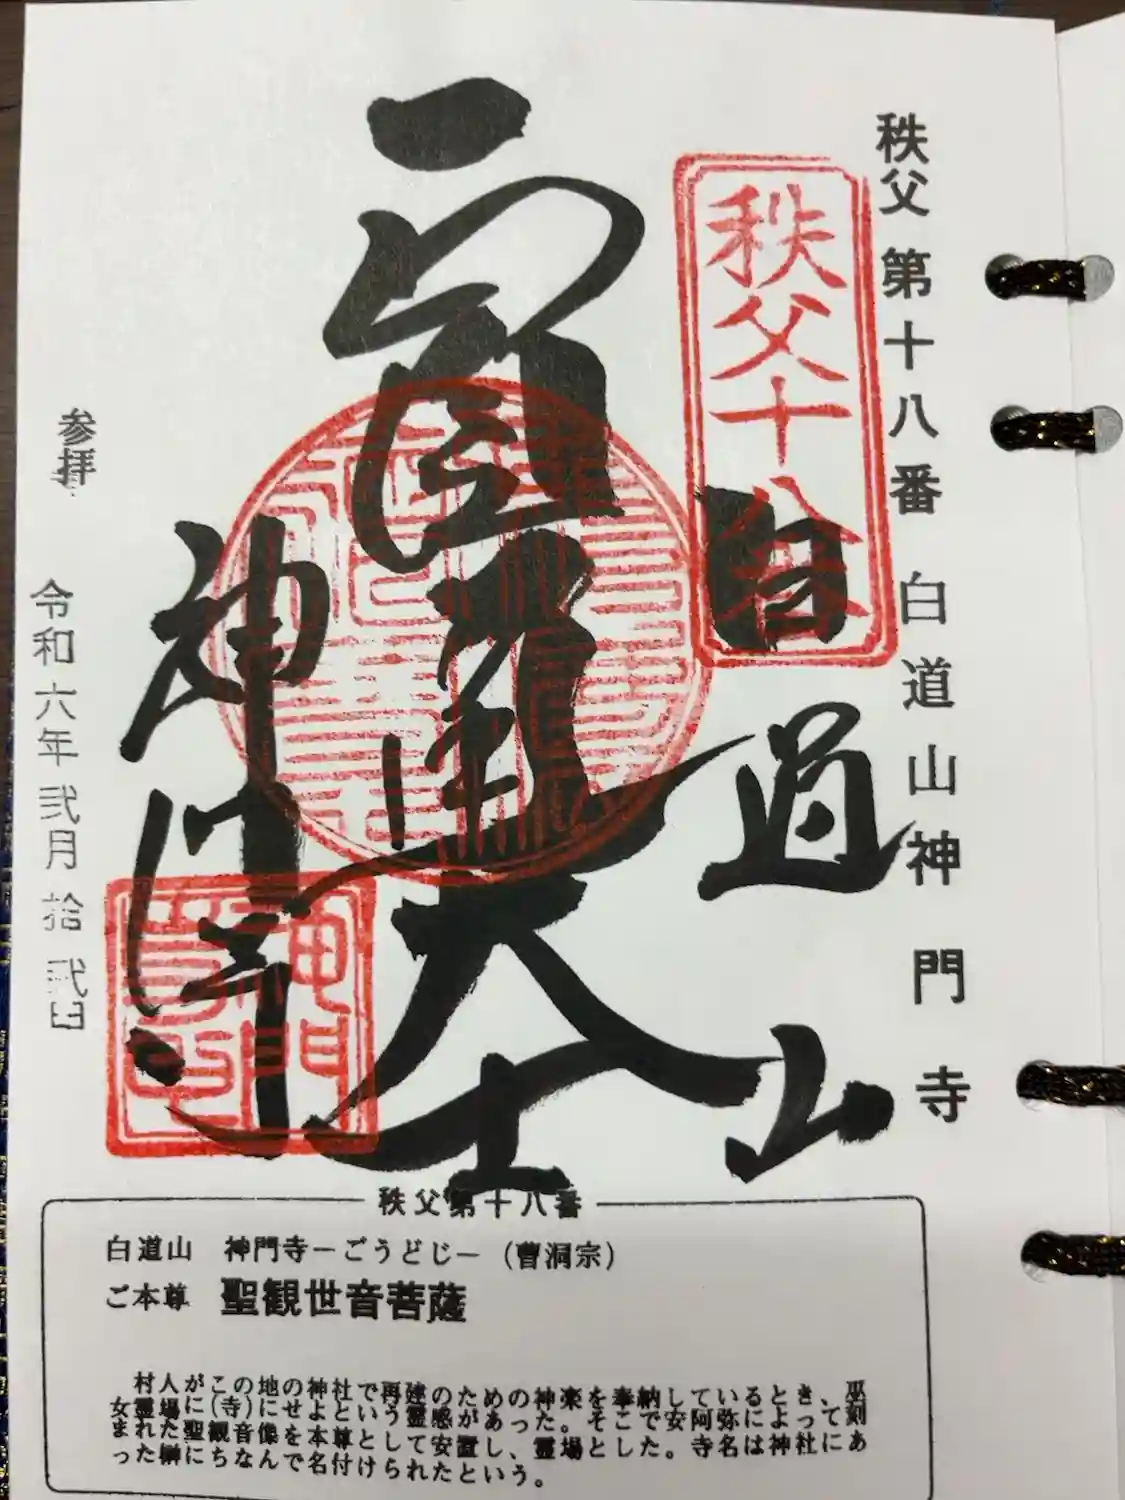 秩父第十八番 白道山神門寺
秩父十八番
白道山
大士
神門寺
参拝
令和六年弐月拾弐日
秩父第十八番
白道山 神門寺−ごうどじ−(曹洞宗)
ご本尊 聖観世音菩薩
村人がこの地の神社で再建のための神楽を奉納しているとき、巫
女霊場に(寺)にせよという霊感があった。そこで安阿弥によって刻
まれた聖観音像を本尊として安置し、霊場とした。寺名は神社にあ
った榊にちなんで名付けられたという。